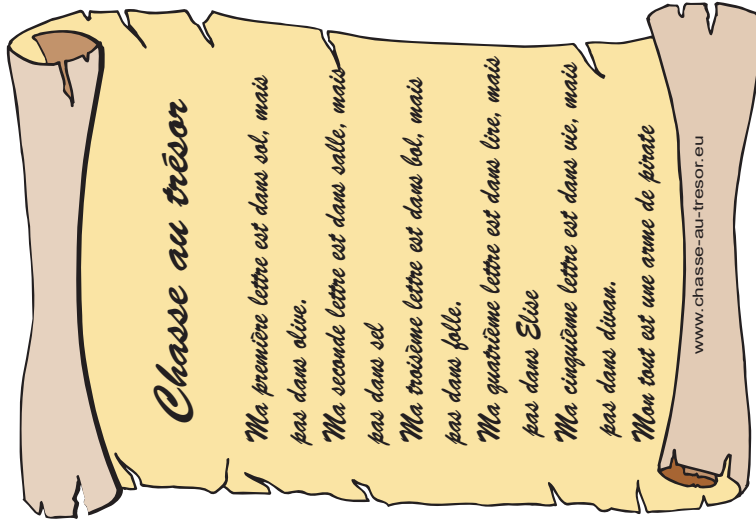 Chasse au trésor
Ma première lettre est dans sol, mais
pas dans olive.
Ma seconde lettre est dans salle, mais
pas dans sel
Ma troisème lettre est dans bol, mais
pas dans folle.
Ma quatrième lettre est dans lire, mais
pas dans Elise
Ma cinquième lettre est dans vie, mais
pas dans divan.
Mon tout est une arme de pirate
www.chasse-au-tresor.eu